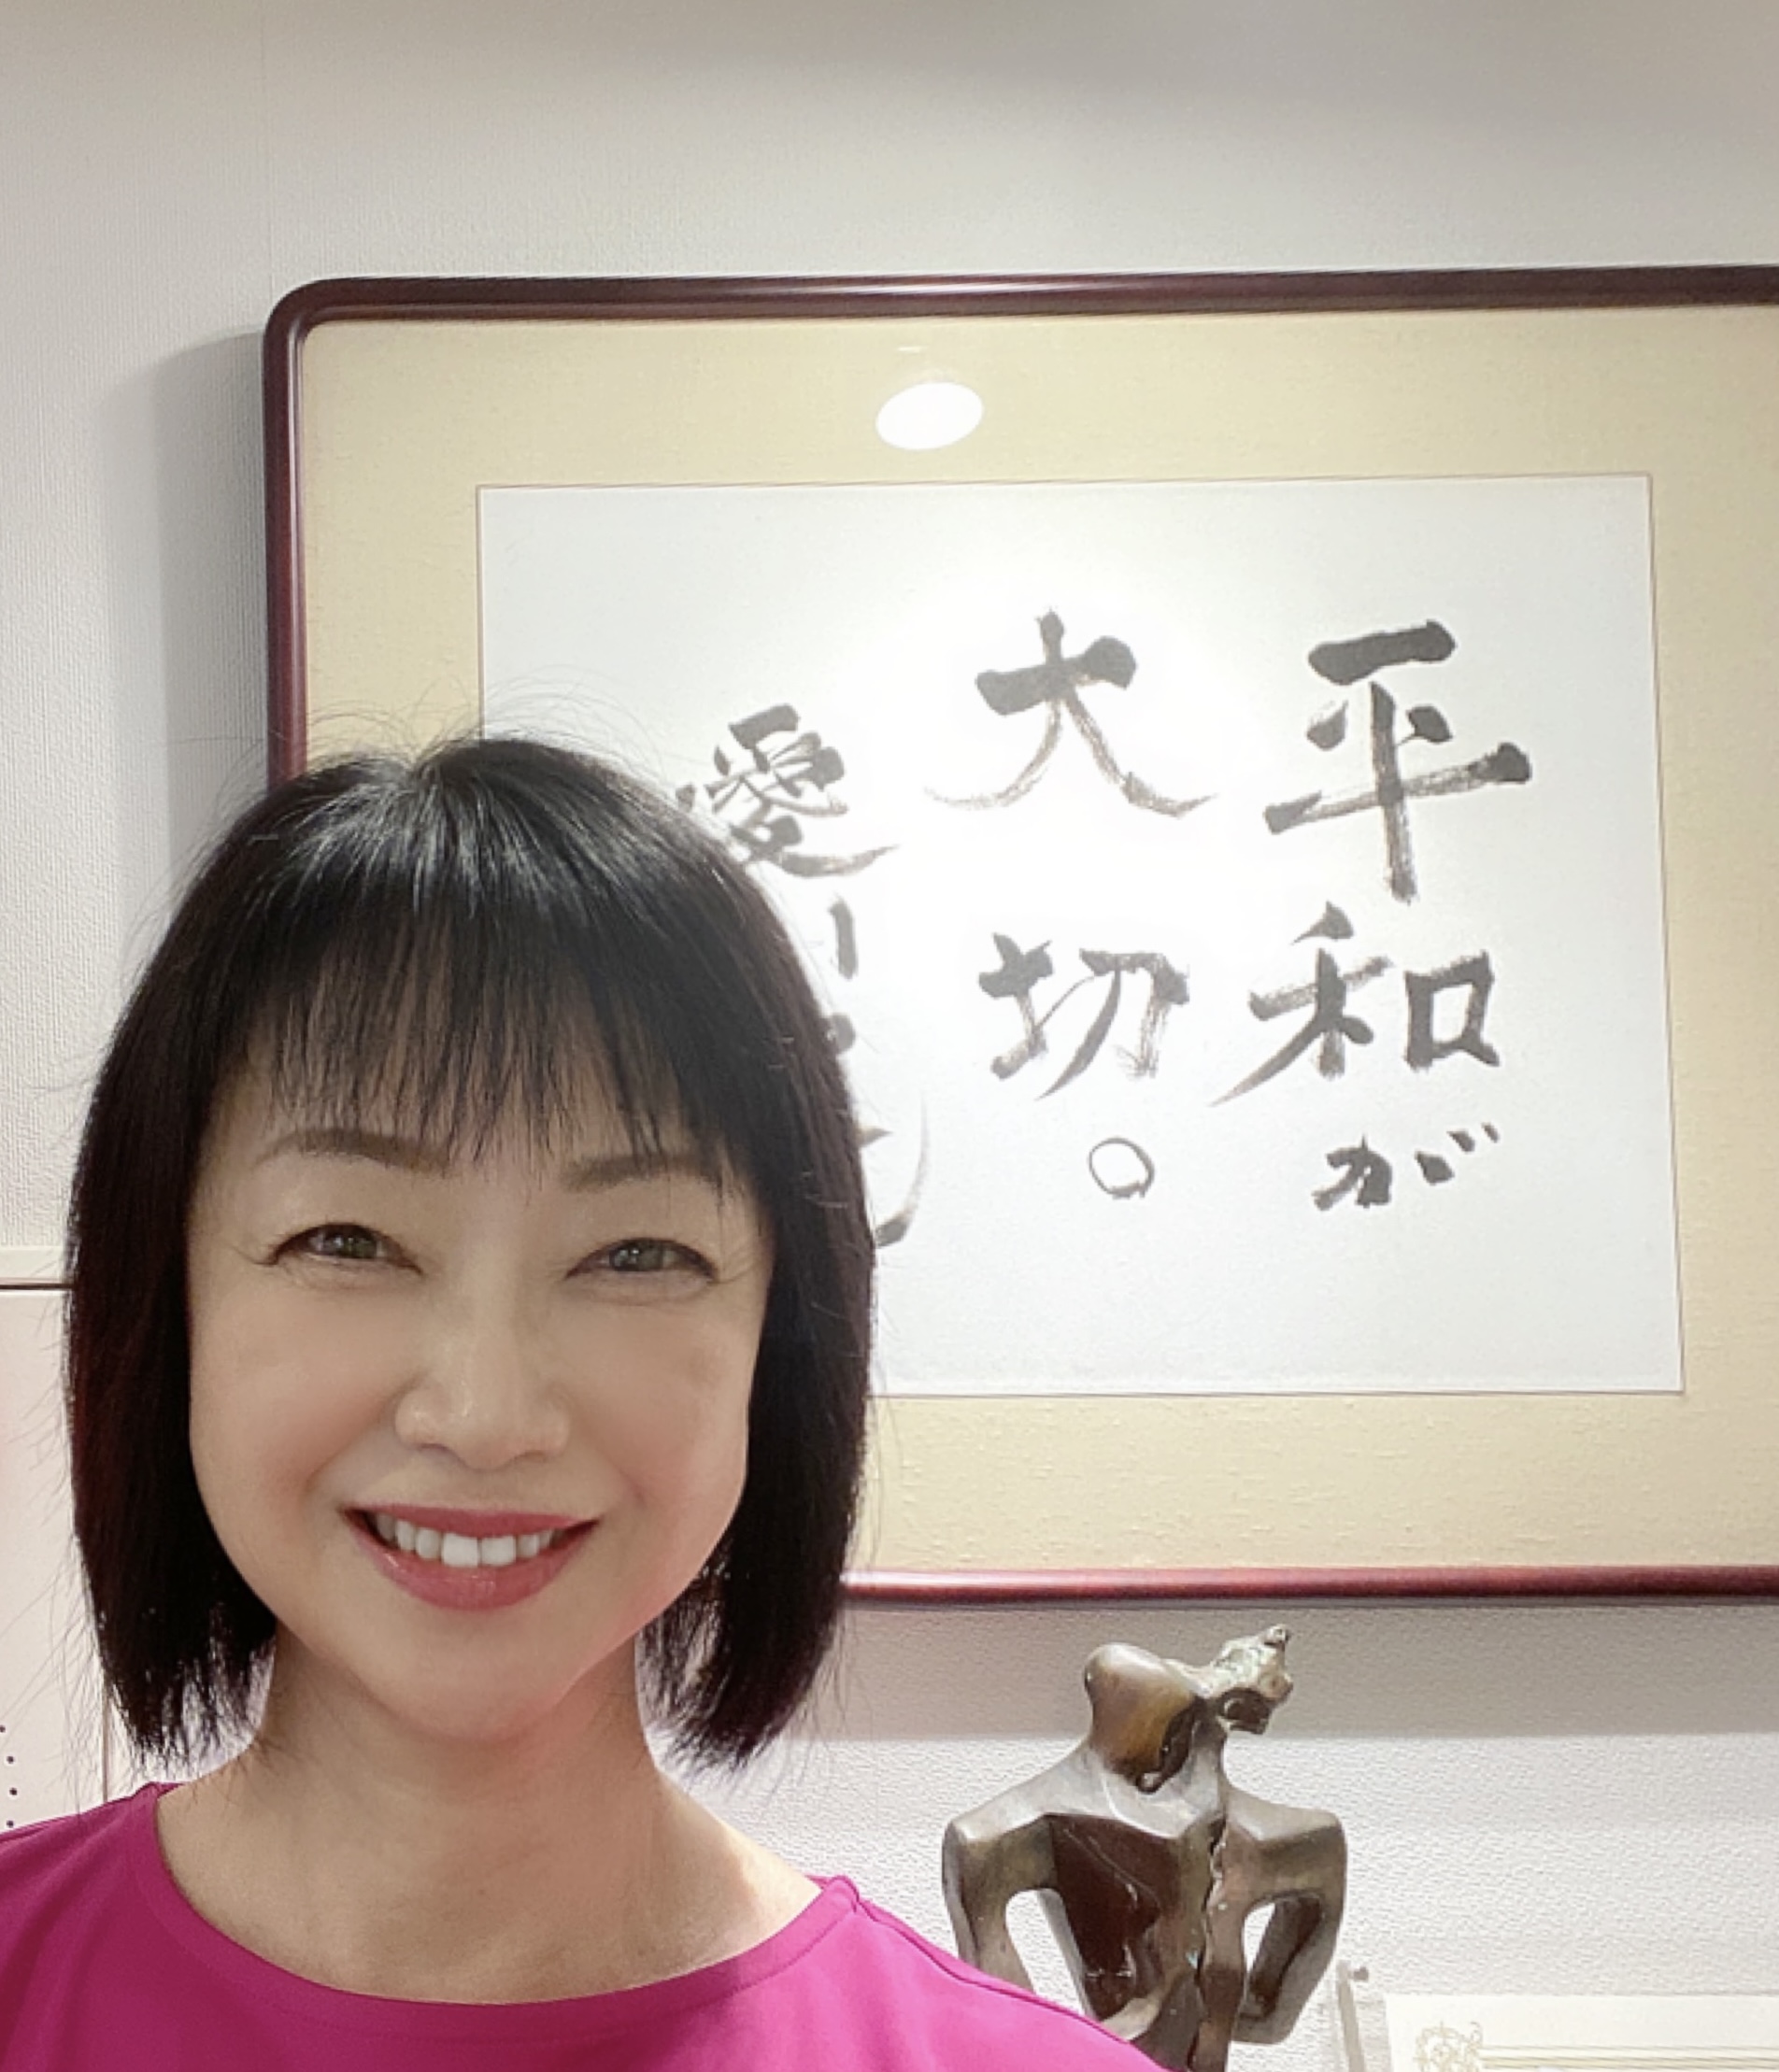 平和が
大切。
愛